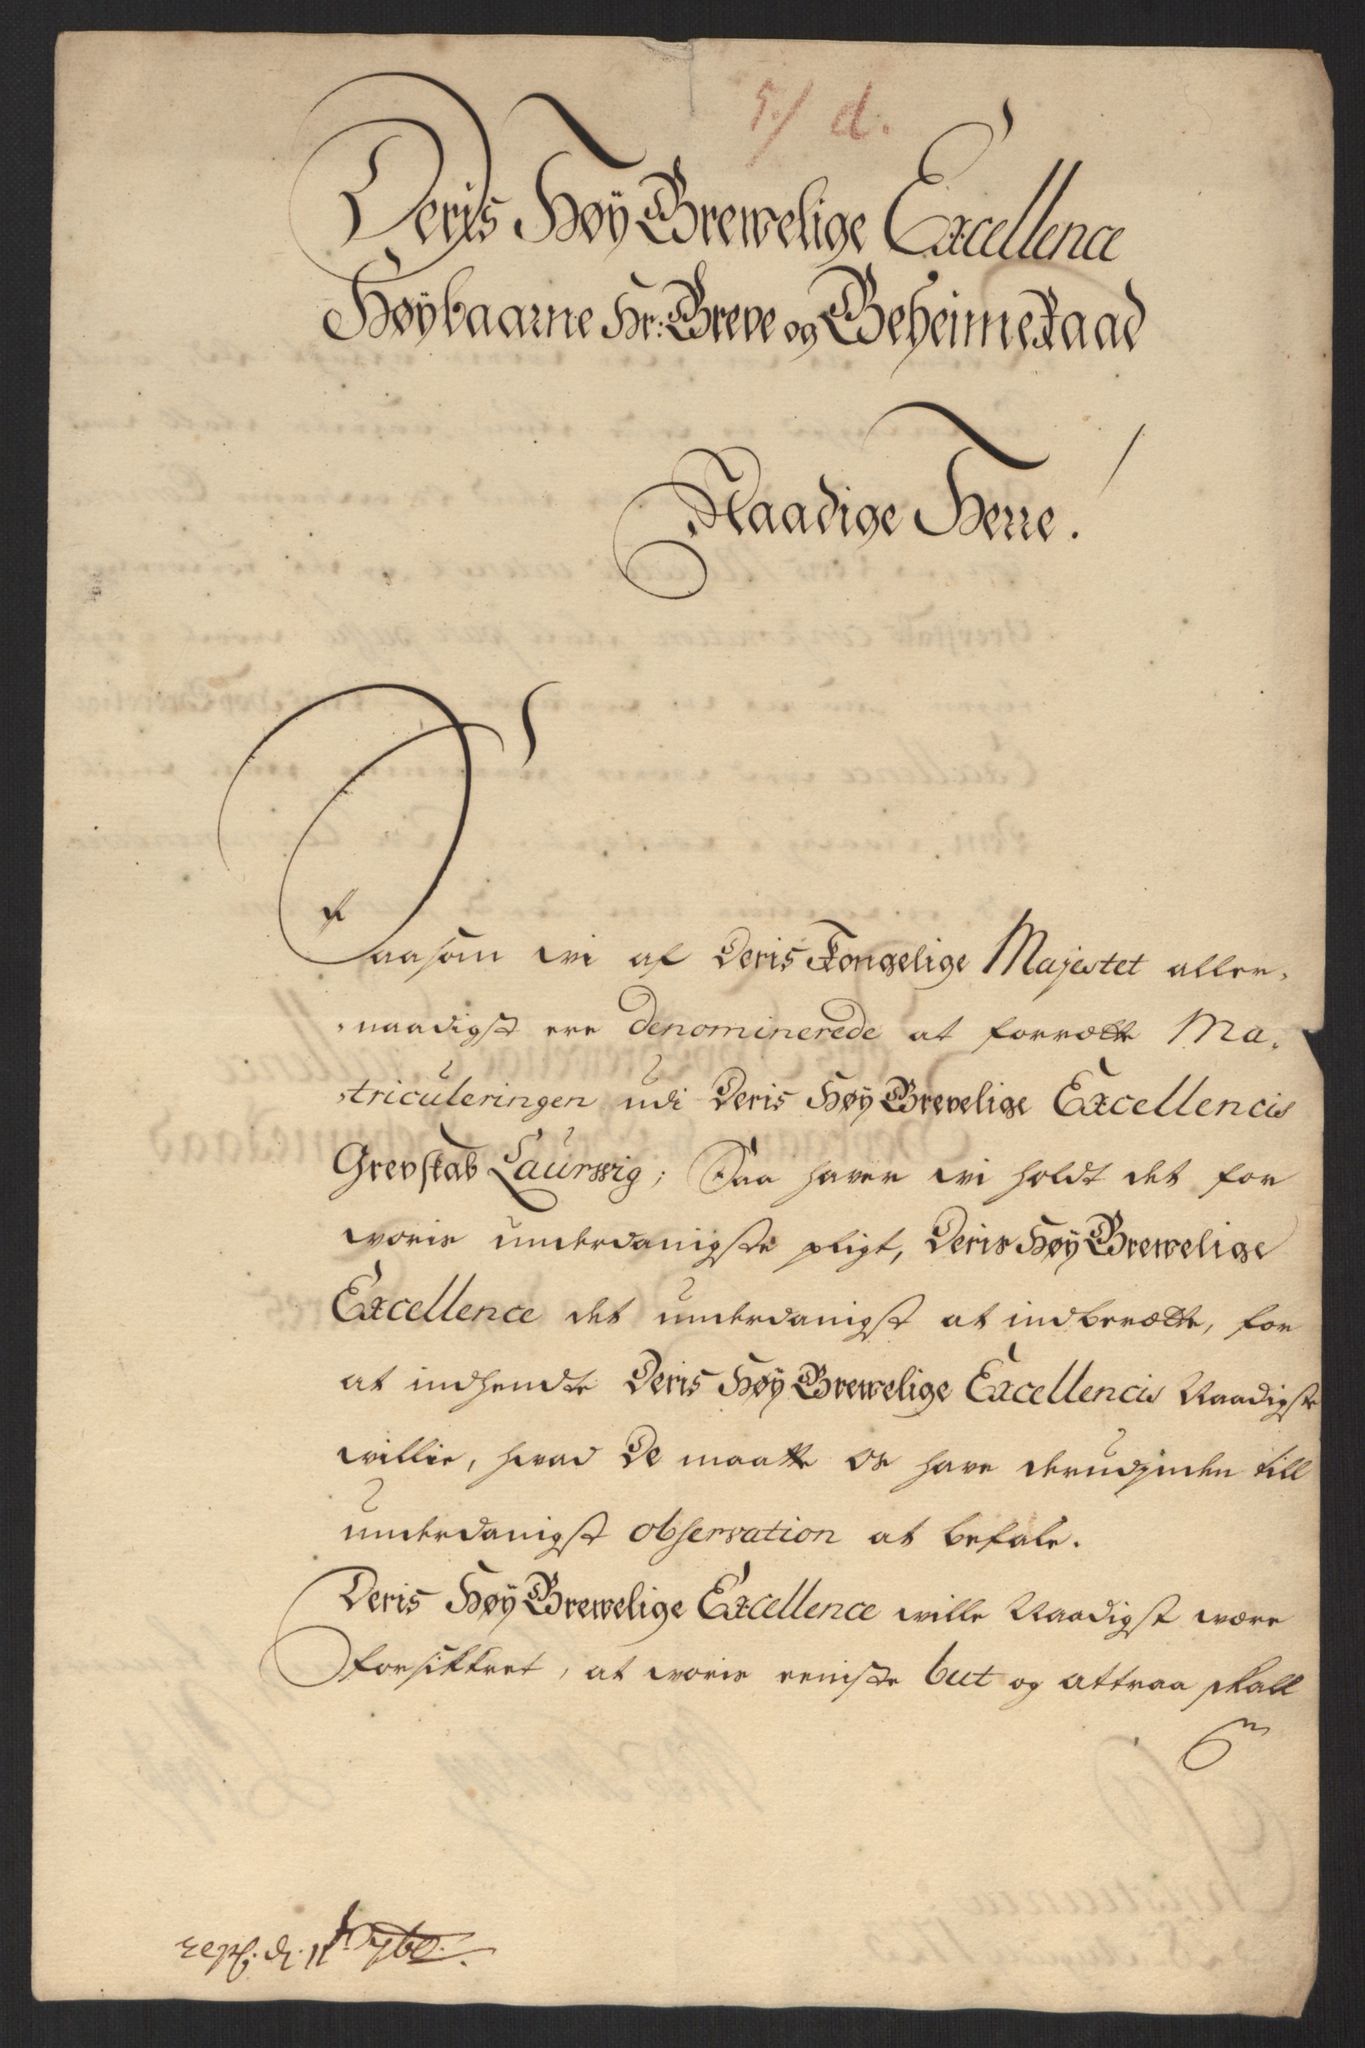 5./ d.
Deris Høÿ Grewelige Excellence
Høÿbaarne Hr: Greve og Geheimeraad
Naadige Herre.
Saasom wi af Deris Kongelige Majestet aller-
naadigst ere denominerede at forrette Ma-
triculeringen udi Deris Høÿ Grevelige Excellencis
Grevskab Laurwig; Saa haver wi holdt det for
woris underdanigste pligt, Deris Høÿ Grewelige
Excellence det underdanigst at indberette, for
at indhendte Deris Høÿ Grewelige Excellencis Naadigste
willie, hvad De maatte os have derudjnden till
underdanigst observation at befale.
Deris Høÿ Grewelige Excellence wille Naadigst være
forsikkret, at woris eeniste but og attraa skall